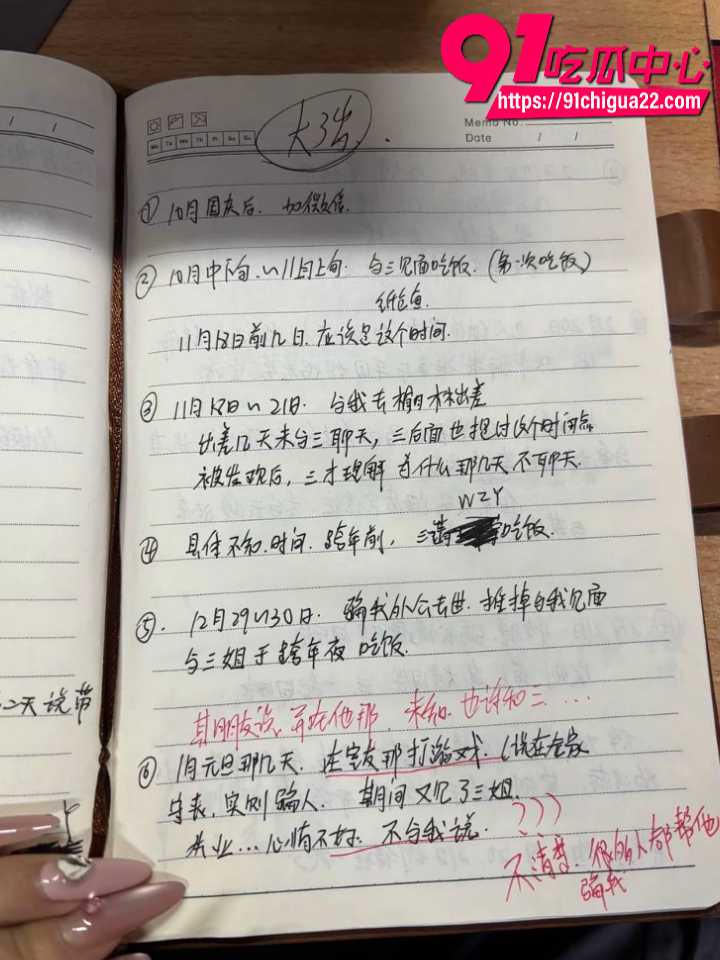 91吃瓜中心
https://91chigua22.com
Memo No.
Mo Tu We Th Fr Sa Su
Date / /
/ /
大三出
① 10月国庆后. 加微信.
② 10月中下旬~11月上旬. 与三见面吃饭.(第一次吃饭)
纸包鱼.
11月18日前几日. 应该是这个时间.
③ 11月18日~21日. 与我去榆林出差
出差几天未与三聊天, 三后面也提过这个时间点
被发现后, 三才理解 为什么那几天不聊天.
WZY
④ 具体不知.时间. 跨年前, 三请 吃饭.
⑤. 12月29~30日. 骗我外公去世. 推掉与我见面
与三姐于跨年夜吃饭.
其朋友说, 并在他那. 未知. 也许和三...
⑥ 1月元旦那几天. 在室友那打游戏. (说在全家
守丧, 实则骗人. 期间又见了三姐.
失业... 心情不好. 不与我说.
???
不清楚. 很多人都帮他
骗我
二天说带